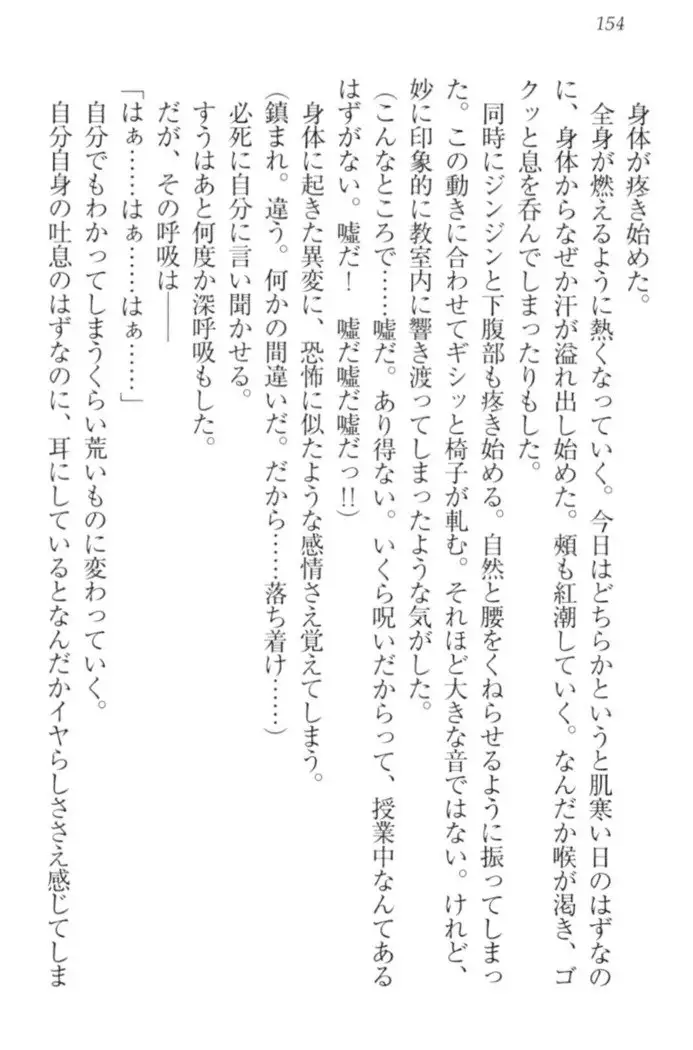 154
身体が疼き始めた。
全身が燃えるように熱くなっていく。今日はどちらかというと肌寒い日のはずなの
に、身体からなぜか汗が溢れ出し始めた。頰も紅潮していく。なんだか喉が渇き、ゴ
クッと息を呑んでしまったりもした。
同時にジンジンと下腹部も疼き始める。自然と腰をくねらせるように振ってしまっ
た。この動きに合わせてギシッと椅子が軋む。それほど大きな音ではない。けれど、
妙に印象的に教室内に響き渡ってしまったような気がした。
(こんなところで……嘘だ。あり得ない。いくら呪いだからって、授業中なんてある
はずがない。嘘だ！　嘘だ嘘だ嘘だっ!!)
身体に起きた異変に、恐怖に似たような感情さえ覚えてしまう。
(鎮まれ。違う。何かの間違いだ。だから……落ち着け……)
必死に自分に言い聞かせる。
すうはあと何度か深呼吸もした。
だが、その呼吸は――
「はぁ……はぁ……はぁ……」
自分でもわかってしまうくらい荒いものに変わっていく。
自分自身の吐息のはずなのに、耳にしているとなんだかイヤらしささえ感じてしま